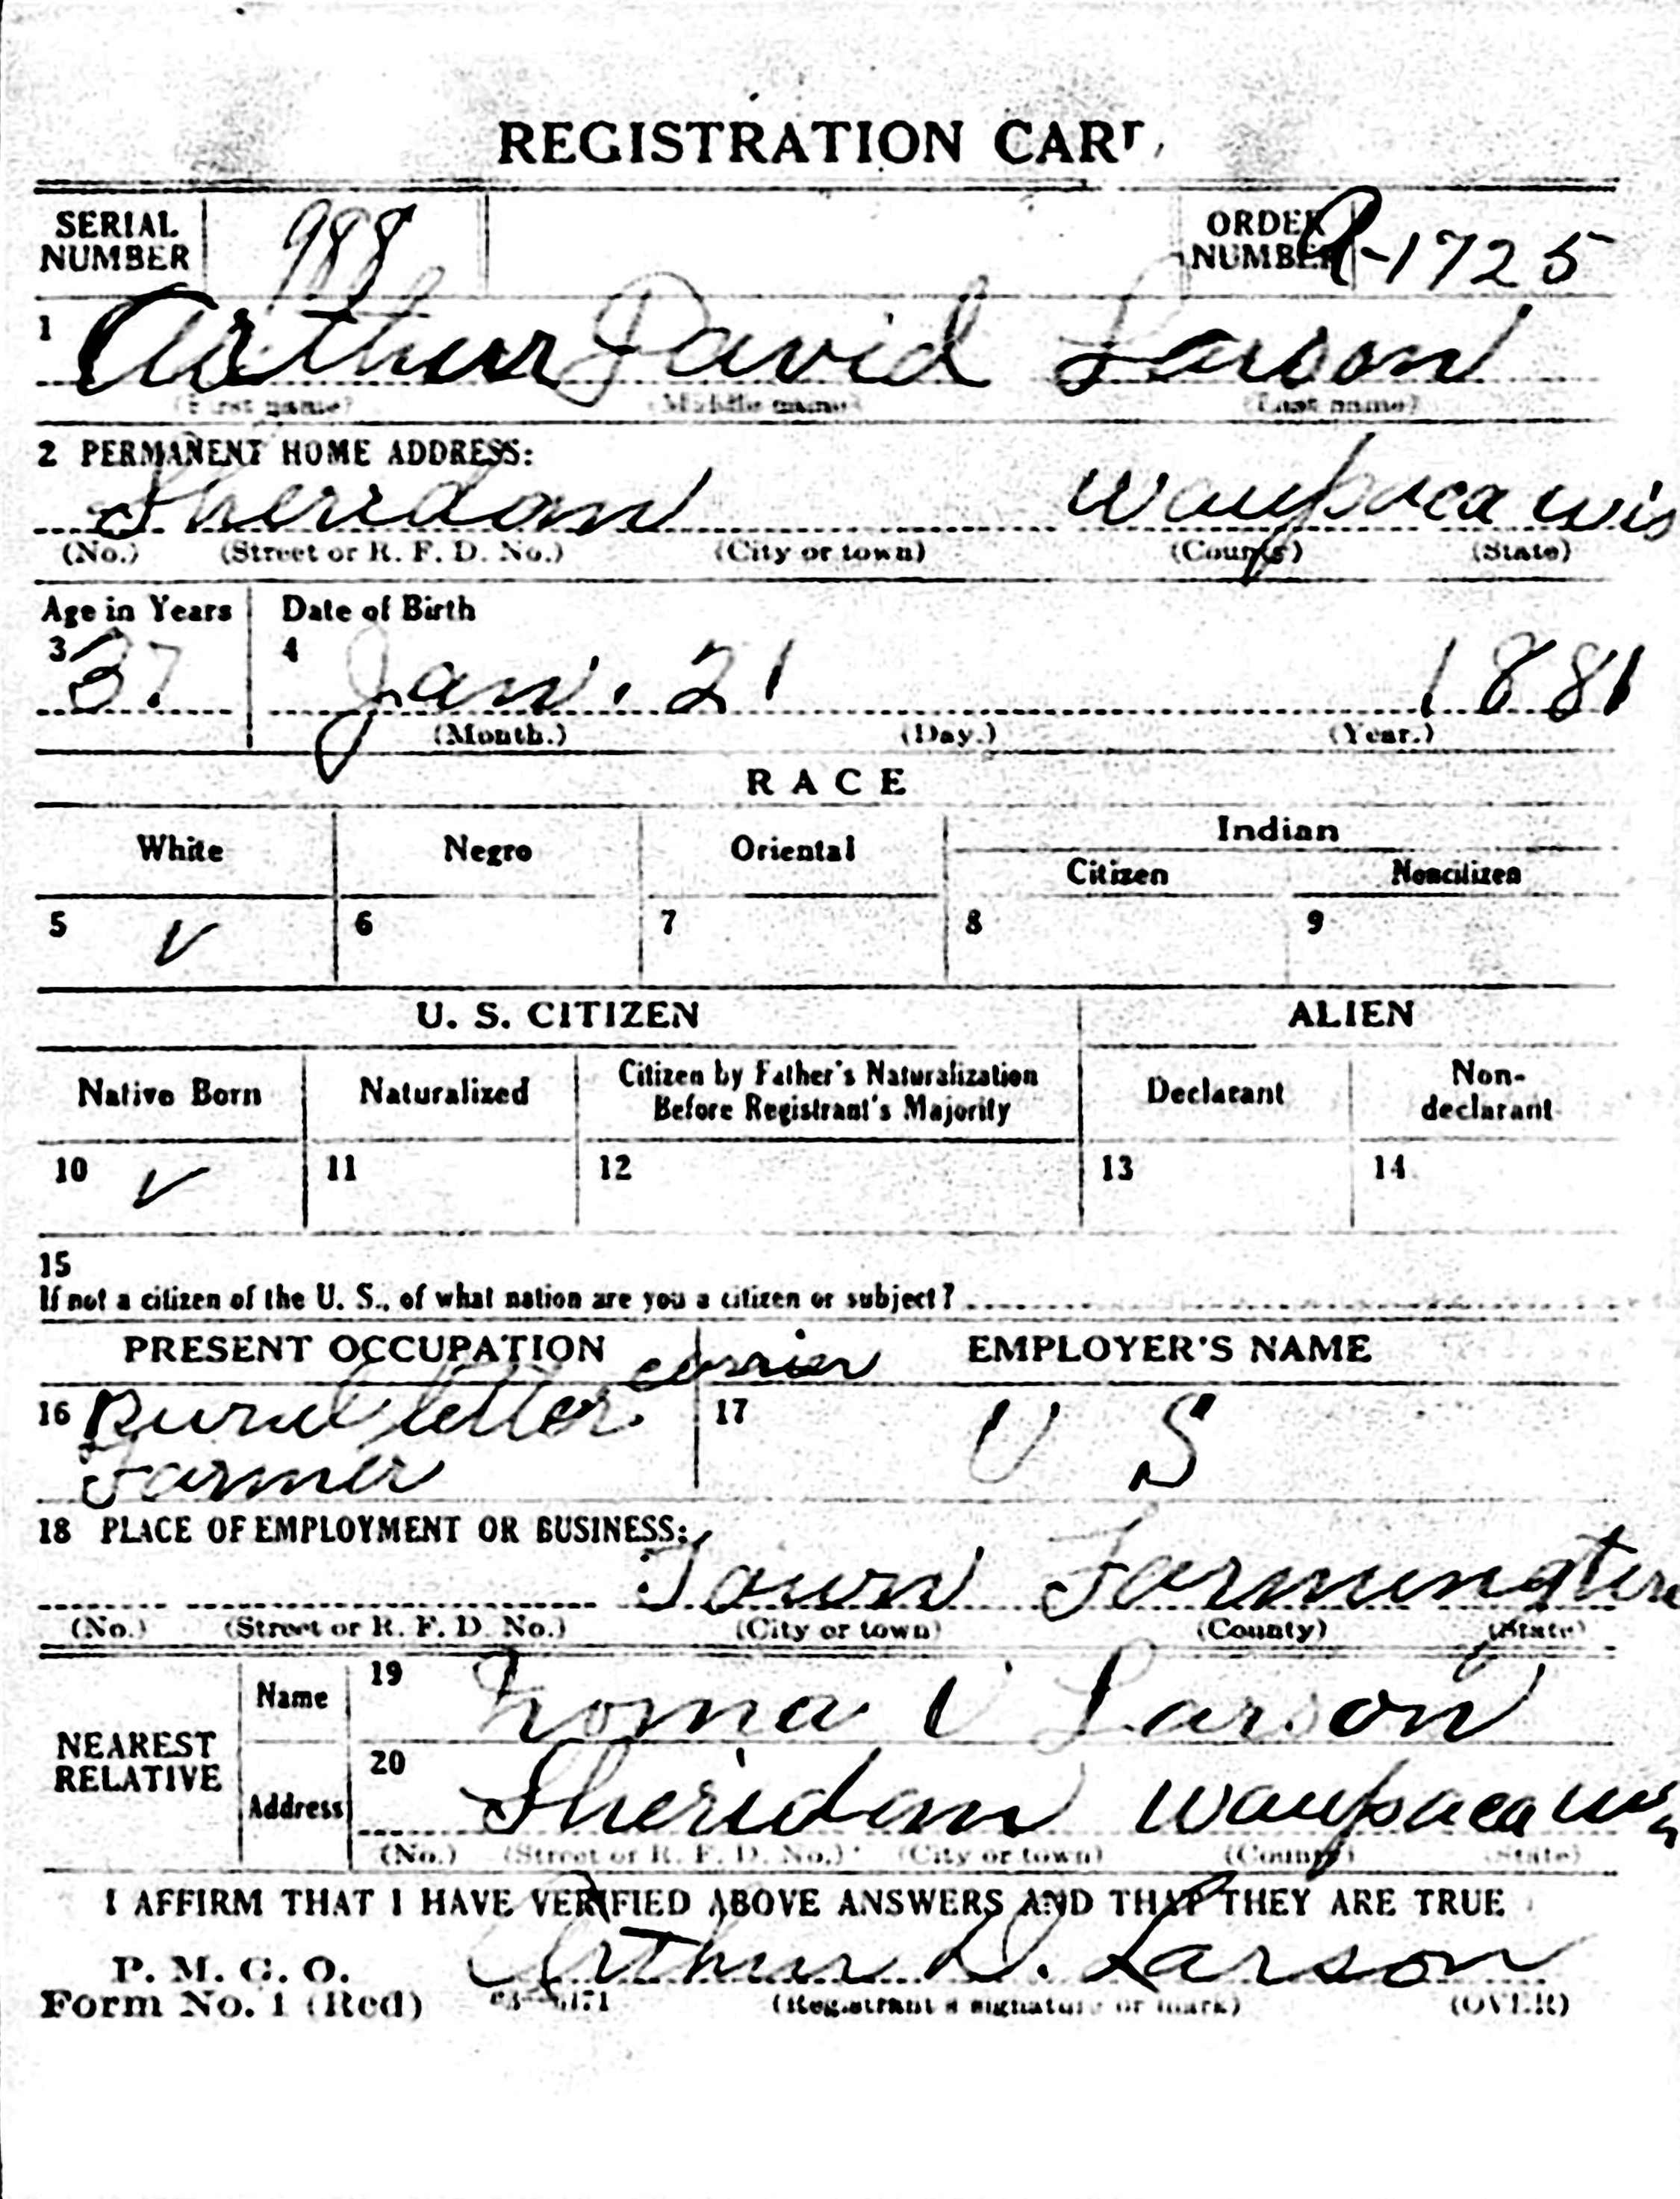 REGISTRATION CARD
SERIAL NUMBER 988 ORDER NUMBER A-1725
1 Arthur David Larson
(First name) (Middle name) (Last name)
2 PERMANENT HOME ADDRESS:
Sheridan Waupaca Wis
(No.) (Street or R. F. D. No.) (City or town) (County) (State)
Age in Years Date of Birth
3 37 4 Jan. 21 1881
(Month.) (Day.) (Year.)
RACE
White Negro Oriental Indian
Citizen Noncitizen
5 ✓ 6 7 8 9
U. S. CITIZEN ALIEN
Native Born Naturalized Citizen by Father's Naturalization Before Registrant's Majority Declarant Non-declarant
10 ✓ 11 12 13 14
15
If not a citizen of the U. S., of what nation are you a citizen or subject?
PRESENT OCCUPATION EMPLOYER'S NAME
16 Rural letter carrier 17 U S
Farmer
18 PLACE OF EMPLOYMENT OR BUSINESS:
Town Farmington
(No.) (Street or R. F. D. No.) (City or town) (County) (State)
NEAREST RELATIVE Name 19 V Larson
Address 20 Sheridan Waupaca Wis
(No.) (Street or R. F. D. No.) (City or town) (County) (State)
I AFFIRM THAT I HAVE VERIFIED ABOVE ANSWERS AND THAT THEY ARE TRUE
P. M. G. O.
Arthur D. Larson
Form No. 1 (Red) 03—6171 (Registrant's signature or mark) (OVER)